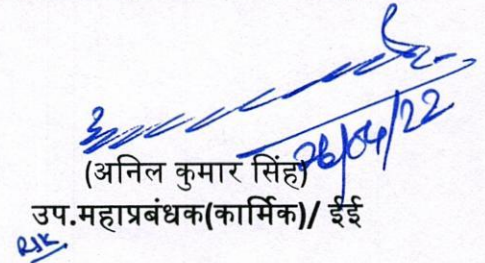 26/04/22
(अनिल कुमार सिंह)
उप.महाप्रबंधक(कार्मिक)/ ईई